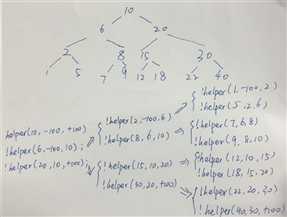 10
6 20
2 8 15 30
1 5 7 9 12 18 22 40
!helper(1,-100,2)
!helper(2,-100,6) !helper(5,2,6)
helper(10,-100,+100) !helper(8,6,10) => !helper(7,6,8)
!helper(6,-100,10); !helper(9,8,10)
!helper(20,10,+100); !helper(15,10,20) => !helper(12,10,15)
!helper(18,15,20)
!helper(30,20,+100) => !helper(22,20,30)
!helper(40,30,+100)